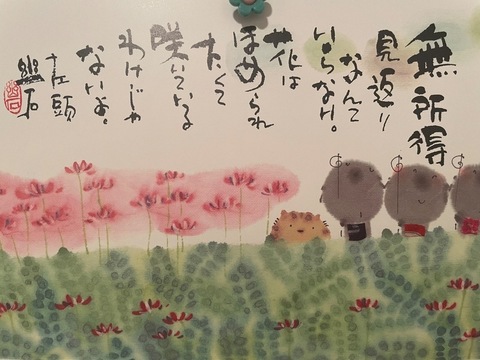 無所得
見返り
なんて
いらない。
花は
ほめられ
たくて
咲いている
わけじゃ
ないよ。